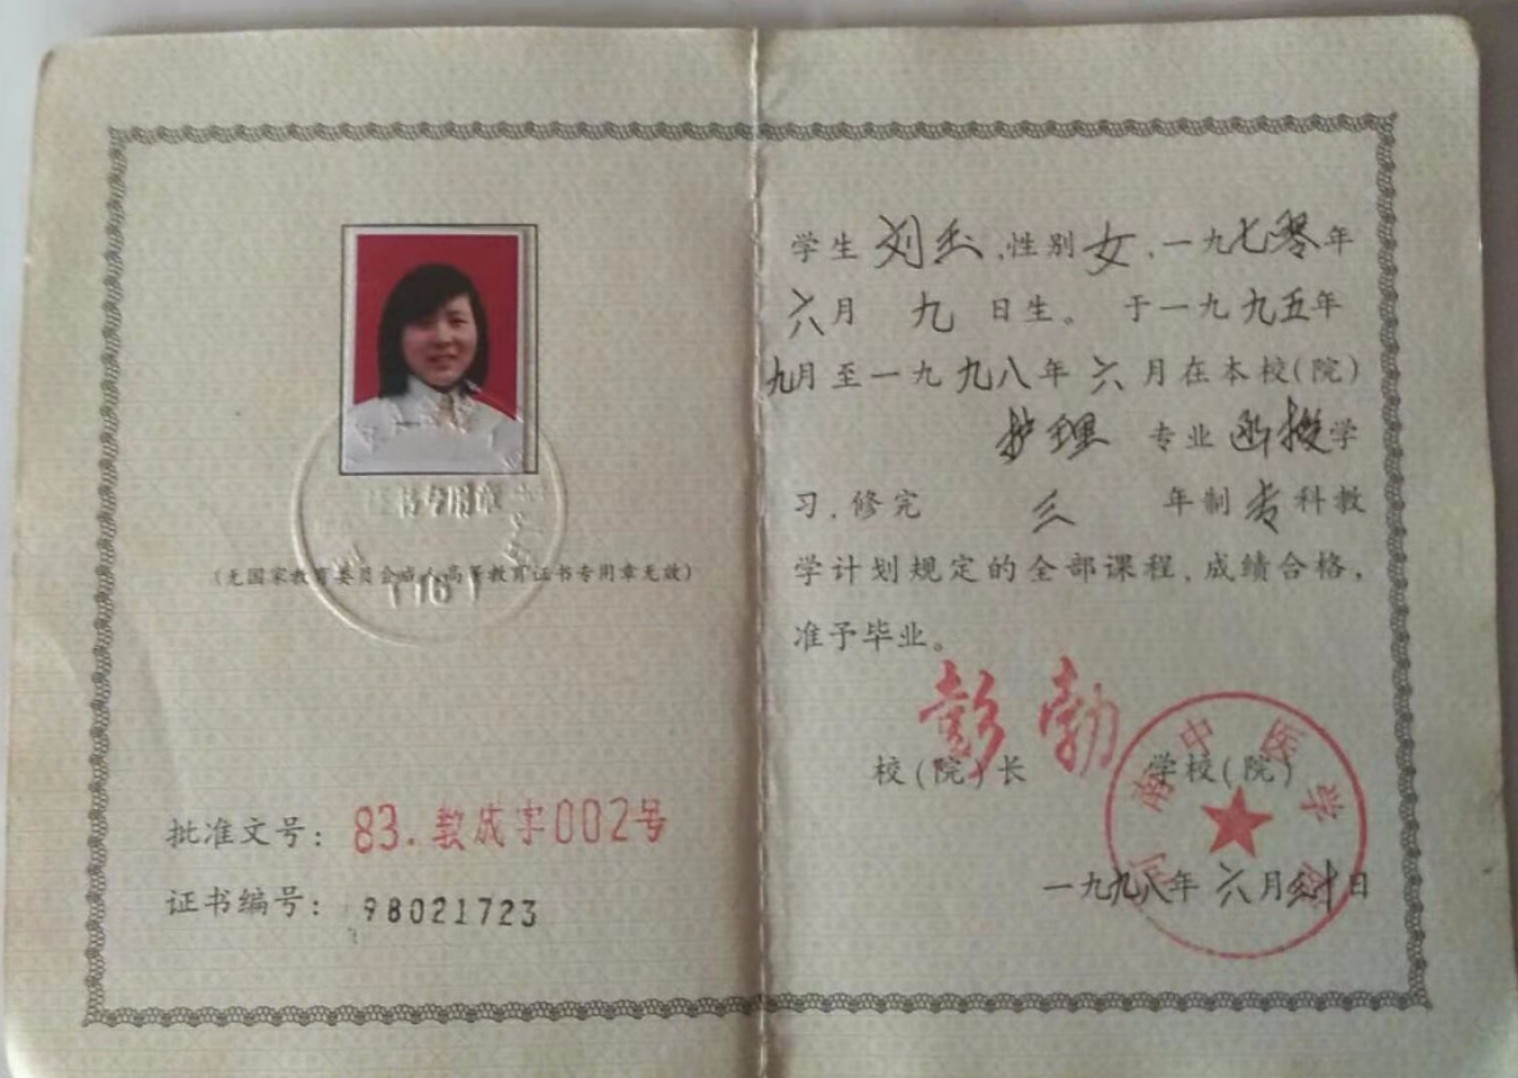 证书专用章
(无国家教育委员会成人高等教育证书专用章无效)
(16)
批准文号：83.教成字002号
证书编号：98021723
学生 刘玉，性别 女，一九七零年
六月 九 日生。 于一九九五年
九月至一九九八年 六 月在本校(院)
护理 专业 函授学
习，修完 三 年制 专科教
学计划规定的全部课程，成绩合格，
准予毕业。
彭勃
校(院)长 学校(院)
河南中医学院
一九九八年 六月三十日